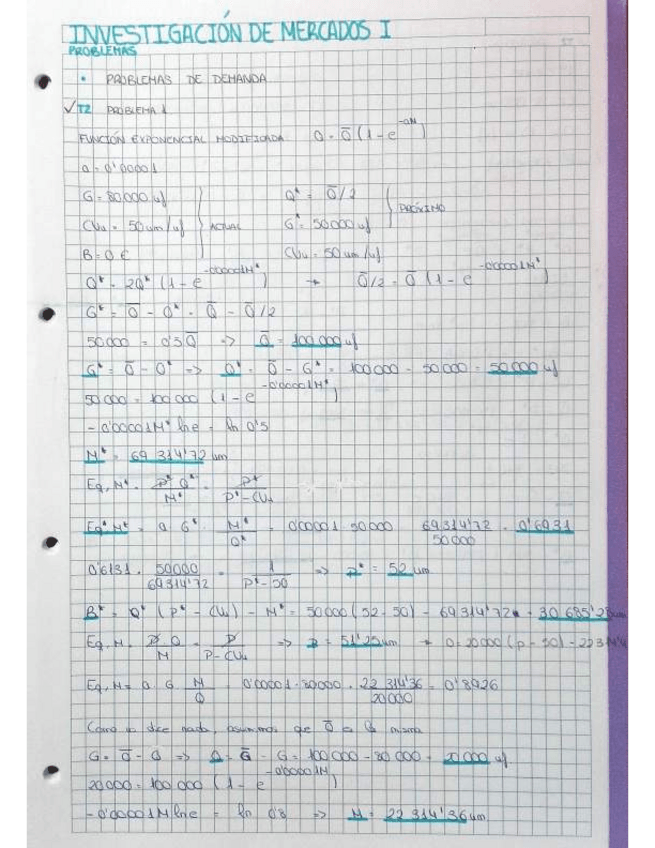 INVESTIGACIÓN DE MERCADOS I
PROBLEMAS
• PROBLEMAS DE DEMANDA
√T2 PROBLEMA 1
FUNCIÓN EXPONENCIAL MODIFICADA Q = Q̄ (1 - e^-aM)
a = 0'00001
G = 80000 uf Q* = Q̄/2
CVu = 50 um/uf ACTUAL G* = 50000 uf PRÓXIMO
B = 0 € CVu = 50 um/uf
Q* = 2Q* (1 - e^-0'00001M*) → Q̄/2 = Q̄ (1 - e^-0'00001M*)
G* = Q̄ - Q* = Q̄ - Q̄/2
50000 = 0'5Q̄ => Q̄ = 100000 uf
G* = Q̄ - Q* => Q* = Q̄ - G* = 100000 - 50000 = 50000 uf
50000 = 100000 (1 - e^-0'00001M*)
-0'00001M* ln e = ln 0'5
M* = 69314'72 um
Eq,M* · P* Q* / M* = P* / P* - CVu
Eq*M* = a · G* · M* / Q* = 0'00001 · 50000 69314'72 / 50000 = 0'6931
0'6931 · 50000 / 69314'72 = 1 / P* - 50 => P* = 52 um
B* = Q* (P* - CVu) - M* = 50000 (52 - 50) - 69314'72 = 30685'28 um
Eq,M · P Q / M = P / P - CVu => P = 51'25 um → 0 = 20000 (p - 50) - 22314'4
Eq,M = a · G · M / Q = 0'00001 · 80000 · 22314'36 / 20000 = 0'8926
Como no dice nada, asumimos que Q̄ es la misma
G = Q̄ - Q => Q = Q̄ - G = 100000 - 80000 = 20000 uf
20000 = 100000 (1 - e^-0'00001M)
-0'00001M ln e = ln 0'8 => M = 22314'36 um